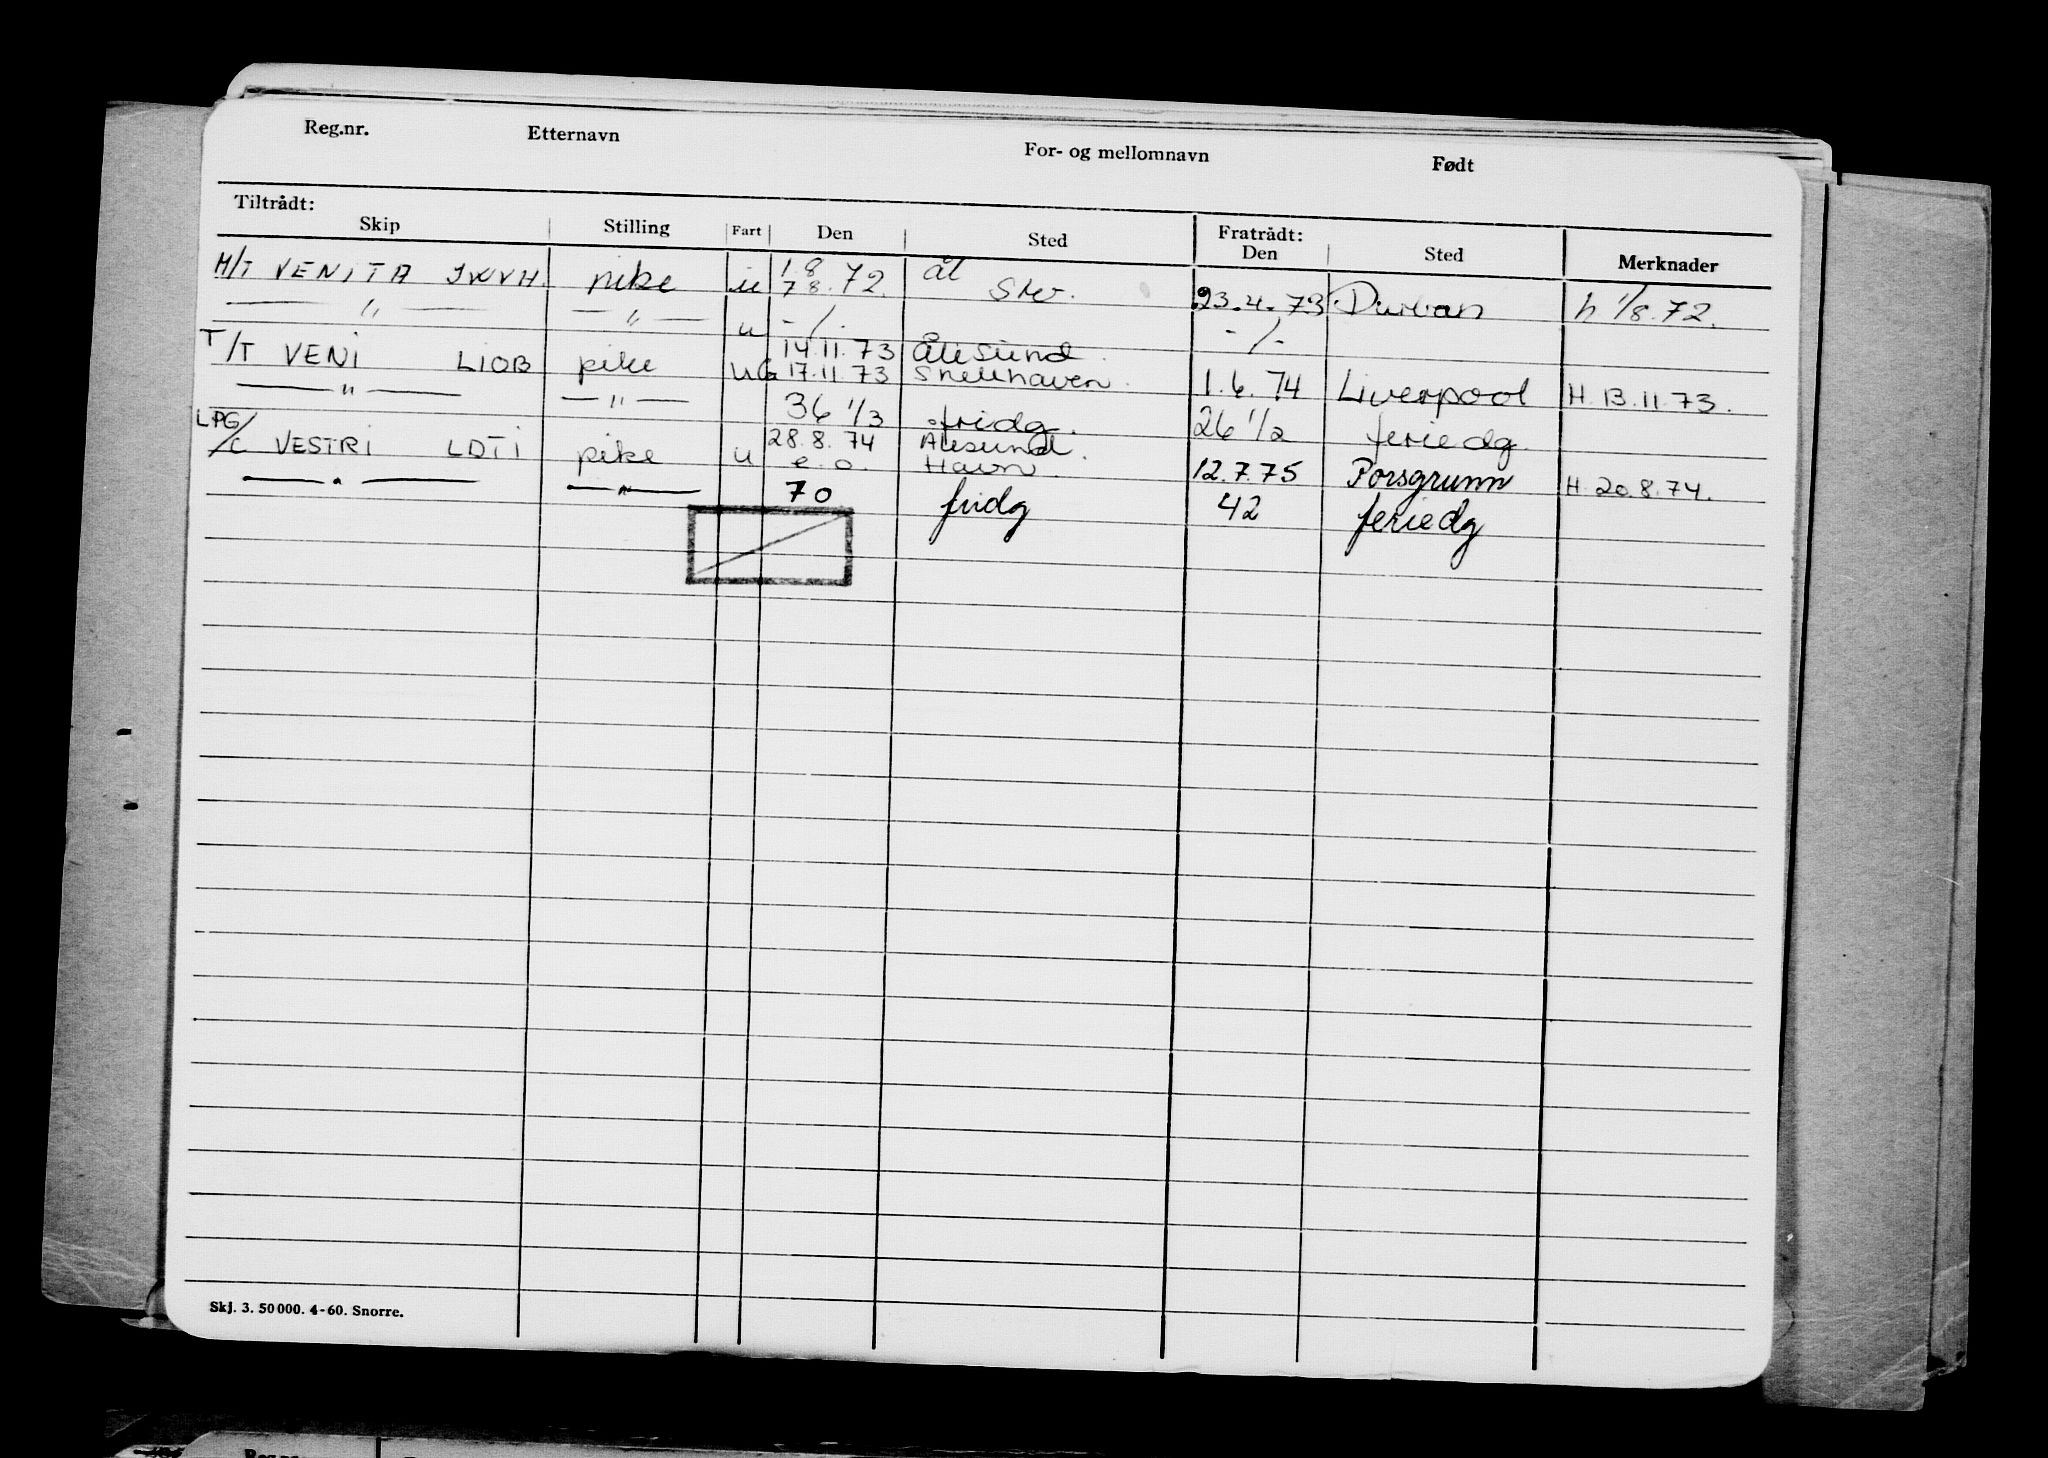 Reg.nr. Etternavn For- og mellomnavn Født
Tiltrådt: Fratrådt:
Skip Stilling Fart Den Sted Den Sted Merknader
M/T VENITA JWVH. pike u 1.8 7.8.72. ål Stv. 23.4.73 Durban h 1/8.72.
— " — — " — u -/- -/-
T/T VENI LIOB pike UG 14.11.73 Ålesund. 17.11.73 Shellhaven. 1.6.74 Liverpool H. 13.11.73.
— " — — " — 36 1/3 fridg. 26 1/2 feriedg.
LPG/C VESTRI LDTI pike u 28.8.74 Ålesund. e.o. Havn. 12.7.75 Porsgrunn H. 20.8.74.
— " — — " — 70 fridg 42 feriedg
Skj. 3. 50 000. 4-60. Snorre.